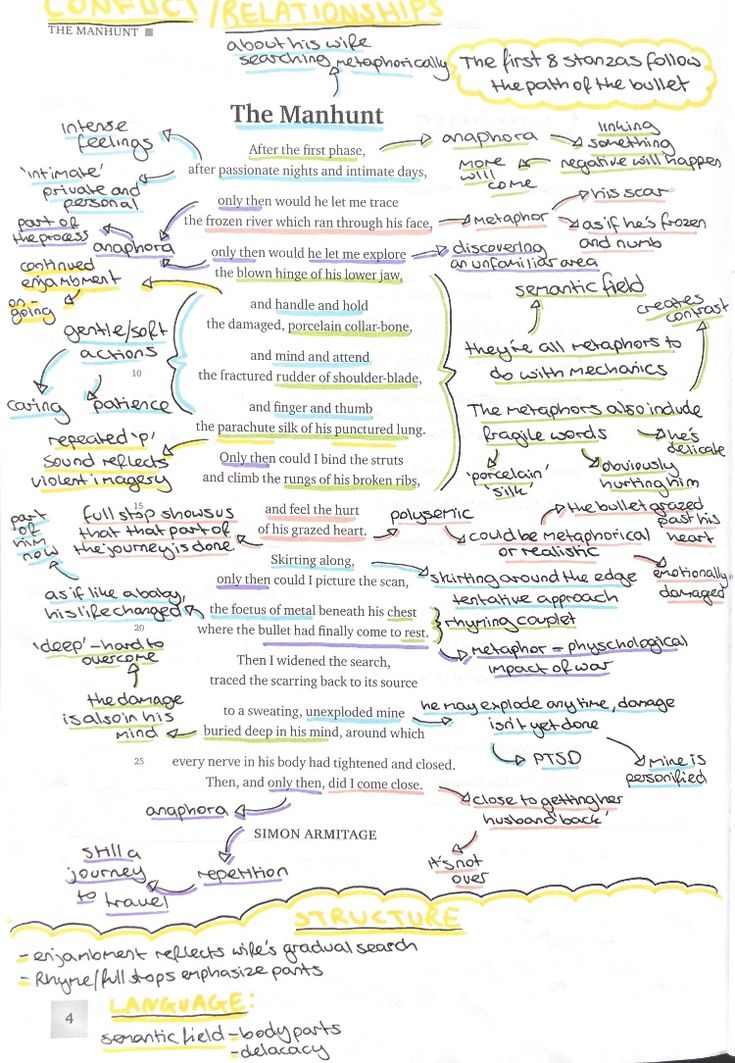 CONFLICT / RELATIONSHIPS
THE MANHUNT
about his wife
searching metaphorically
The first 8 stanzas follow
the path of the bullet
The Manhunt
intense
feelings
'intimate'
private and
personal
After the first phase,
after passionate nights and intimate days,
anaphora
linking
something
negative will happen
more
will
come
only then would he let me trace
the frozen river which ran through his face,
metaphor
his scar
as if he's frozen
and numb
part of
the process
anaphora
only then would he let me explore
the blown hinge of his lower jaw,
discovering
an unfamiliar area
continued
enjambment
on-
going
semantic field
creates
contrast
and handle and hold
the damaged, porcelain collar-bone,
gentle/soft
actions
caring
patience
they're all metaphors to
do with mechanics
10
and mind and attend
the fractured rudder of shoulder-blade,
and finger and thumb
the parachute silk of his punctured lung.
The metaphors also include
fragile words
he's
delicate
'porcelain'
'silk'
obviously
hurting him
repeated 'p'
sound reflects
violent imagery
Only then could I bind the struts
and climb the rungs of his broken ribs,
15
and feel the hurt
of his grazed heart.
full stop shows us
that that part of
the journey is done
polysemic
could be metaphorical
or realistic
the bullet grazed
past his
heart
emotionally
damaged
part
of
him
now
Skirting along,
only then could I picture the scan,
skirting around the edge
tentative approach
as if like a baby,
his life changed
the foetus of metal beneath his chest
20
where the bullet had finally come to rest.
rhyming couplet
metaphor = physchological
impact of war
'deep' - hard to
overcome
Then I widened the search,
traced the scarring back to its source
the damage
is also in his
mind
to a sweating, unexploded mine
buried deep in his mind, around which
he may explode any time, damage
isn't yet done
PTSD
mine is
personified
25
every nerve in his body had tightened and closed.
Then, and only then, did I come close.
anaphora
close to getting her
husband 'back'
it's not
over
SIMON ARMITAGE
repetition
still a
journey
to
travel
STRUCTURE
- enjambment reflects wife's gradual search
- Rhyme/full stops emphasize parts
4
LANGUAGE:
semantic field - body parts
- delacacy